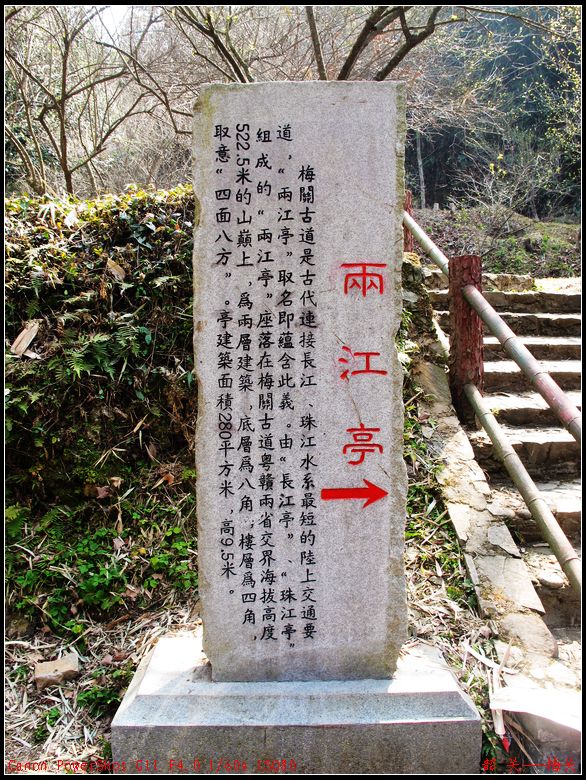 兩江亭
梅關古道是古代連接長江、珠江水系最短的陸上交通要
道,“兩江亭”取名即蘊含此義。由“長江亭”、“珠江亭”
組成的“兩江亭”座落在梅關古道粵贛兩省交界海拔高度
522.5米的山巔上,爲兩層建築,底層爲八角,樓層爲四角,
取意“四面八方”。亭建築面積280平方米,高9.5米。
Canon PowerShot G11 F4.5 1/60s ISO80
韶关——梅关